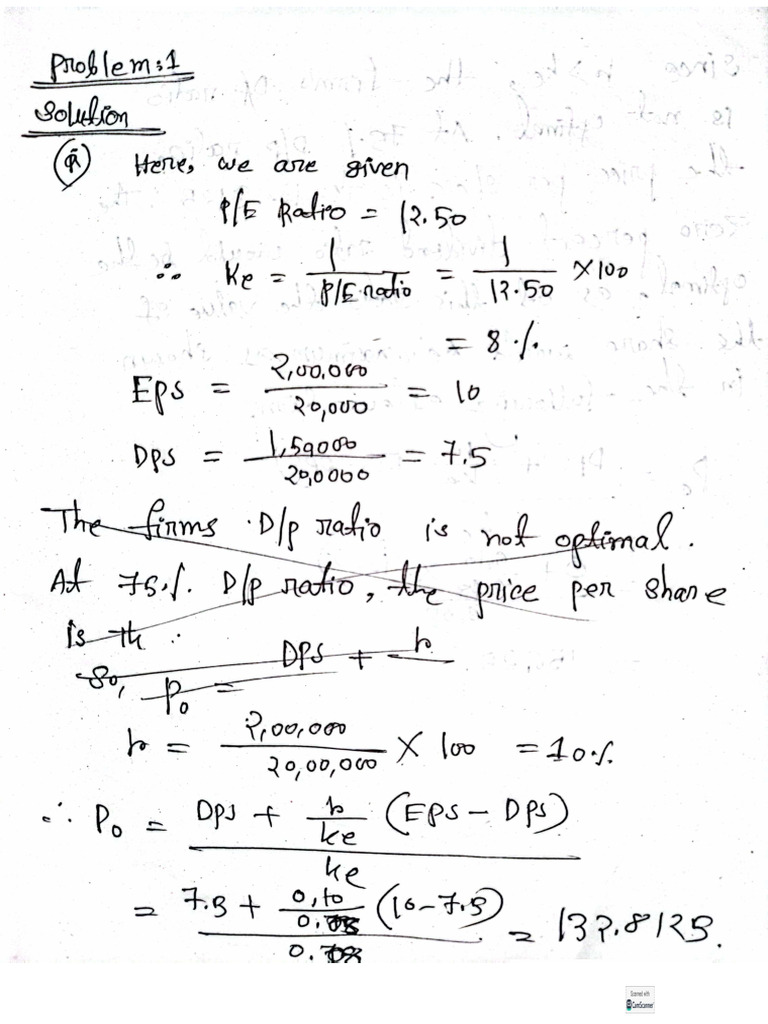 Problem:1
Solution
(a) Here, we are given
P/E Ratio = 12.50
∴ Ke = 1 / P/E ratio = 1 / 12.50 × 100
= 8 %
Eps = 2,00,000 / 20,000 = 10
Dps = 1,59000 / 20,0000 = 7.5
The firms D/p ratio is not optimal.
At 75% D/p ratio, the price per share
is th
So, P₀ = DPS + r
r = 2,00,000 / 20,00,000 × 100 = 10%
∴ P₀ = DPS + r / ke (EPS – DPS) / ke
= 7.5 + 0.10 / 0. (10 – 7.5) / 0. = 132.8125.
Scanned with
CamScanner